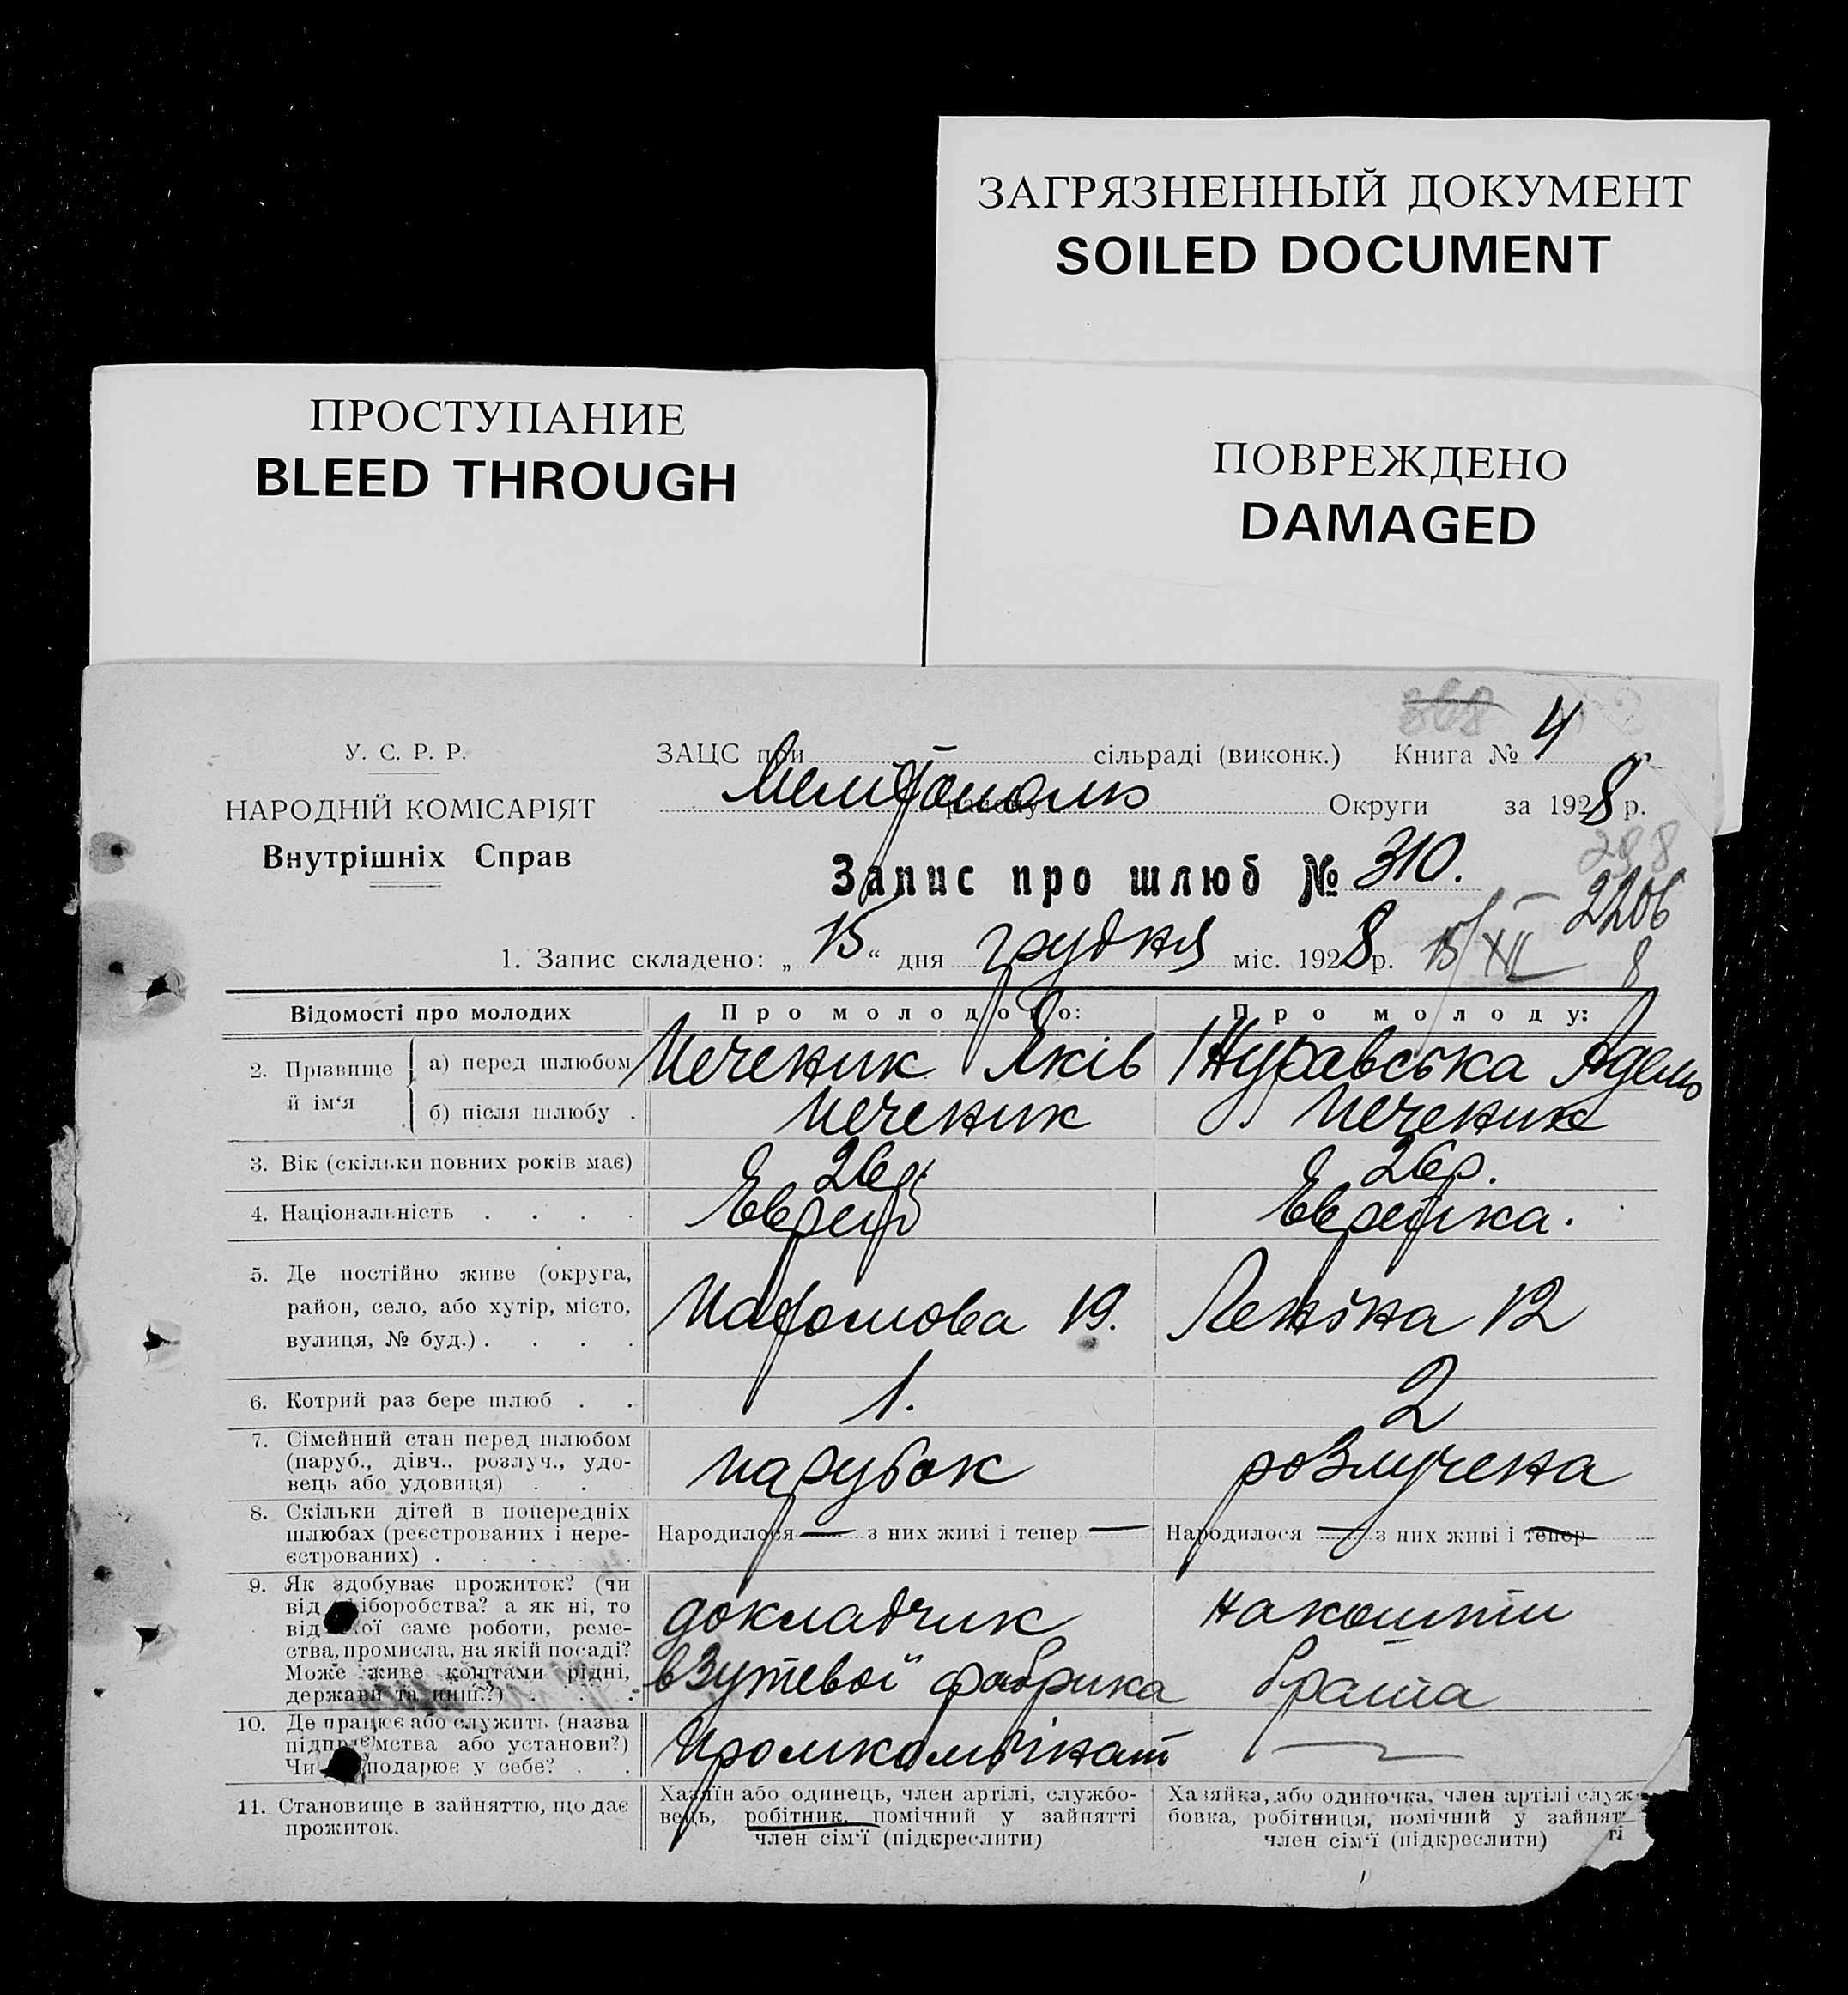 ЗАГРЯЗНЕННЫЙ ДОКУМЕНТ
SOILED DOCUMENT
ПРОСТУПАНИЕ
BLEED THROUGH
ПОВРЕЖДЕНО
DAMAGED
У. С. Р. Р.
НАРОДНІЙ КОМІСАРІЯТ
Внутрішніх Справ
ЗАЦС при сільраді (виконк.) Книга № 4
району Округи за 1928 р.
288
Запис про шлюб № 310.
2206
1. Запис складено: „15“ дня грудня міс. 1928 р. 15/XII 8
Відомості про молодих Про молодого: Про молоду:
2. Прізвище й ім‘я
а) перед шлюбом Печеник Яків Журавська Адель
б) після шлюбу Печеник Печеник
3. Вік (скільки повних років має) 26 р. 26 р.
4. Національність Еврей Еврейка.
5. Де постійно живе (округа,
район, село, або хутір, місто,
вулиця, № буд.) 19. Леніна 12
6. Котрий раз бере шлюб 1. 2
7. Сімейний стан перед шлюбом
(паруб., дівч., розлуч., удо-
вець або удовиця) парубок розлучена
8. Скільки дітей в попередніх
шлюбах (реєстрованих і нере-
єстрованих) Народилося — з них живі і тепер — Народилося — з них живі і тепер —
9. Як здобуває прожиток? (чи
від хліборобства? а як ні, то
від якої саме роботи, реме-
ства, промисла, на якій посаді?
Може живе коштами рідні,
держави та инш.?)
докладчик
взутевої фабрика
на кошти
брата
10. Де працює або служить (назва
підприємства або установи?)
Чи господарює у себе? Промкомбінат —
11. Становище в зайняттю, що дає
прожиток.
Хазяїн або одинець, член артілі, службо-
вець, робітник, помічний у зайнятті
член сім‘ї (підкреслити)
Хазяйка, або одиночка, член артілі служ-
бовка, робітниця, помічний у зайнят
ті
член сім‘ї (підкреслити)